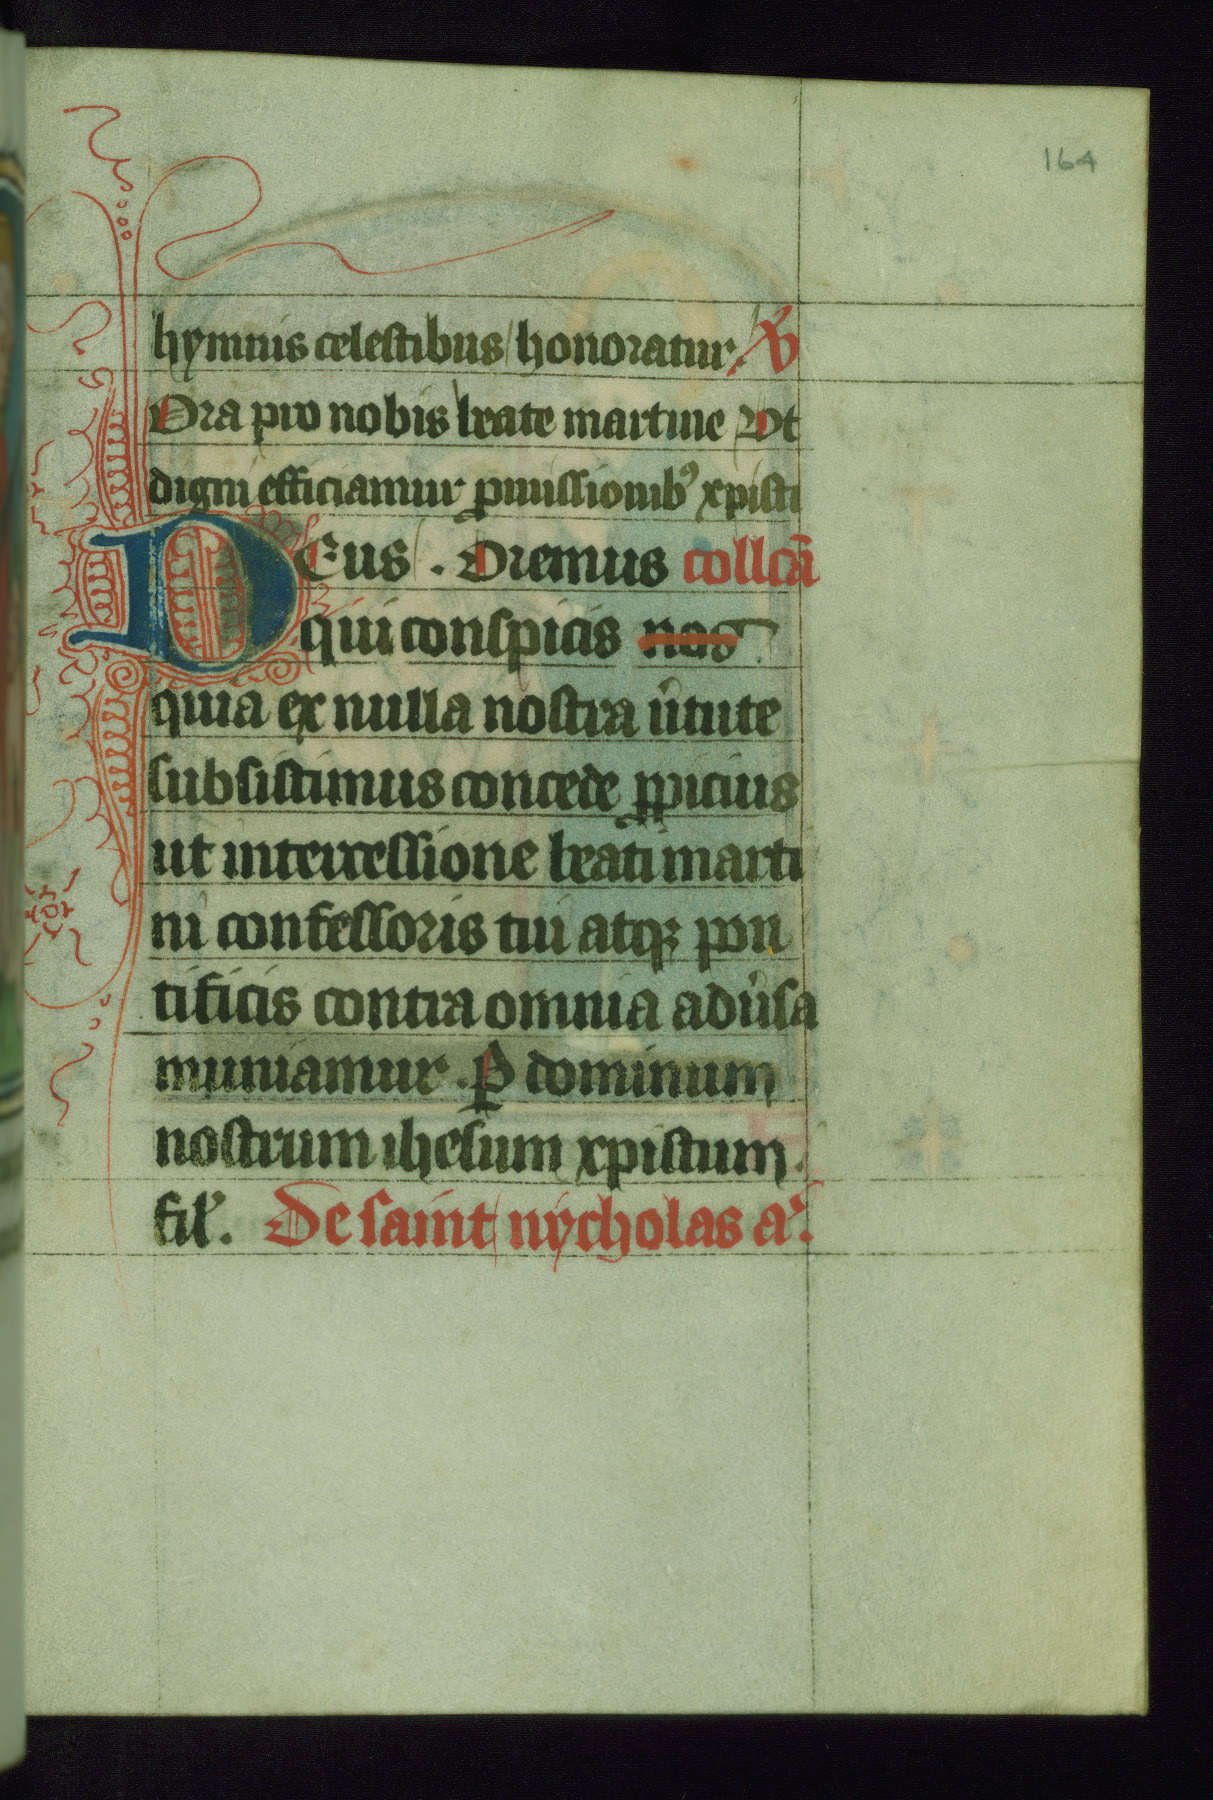 164
hymnis celestibus honoratur. V̓
Ora pro nobis beate martine Vt
digni efficiamur ꝓmissionibꝰ xpisti
DEus . Oremus collcā
qui conspicis nos
quia ex nulla nostra u̓tute
subsistimus concede ꝓpicius
ut intercessione beati marti
ni confessoris tui atqꝫ pon
tificis contra omnia adu̓sa
muniamur . P̲ dominum
nostrum ihesum xpistum.
fil̓. De saint nycholas aʳ.